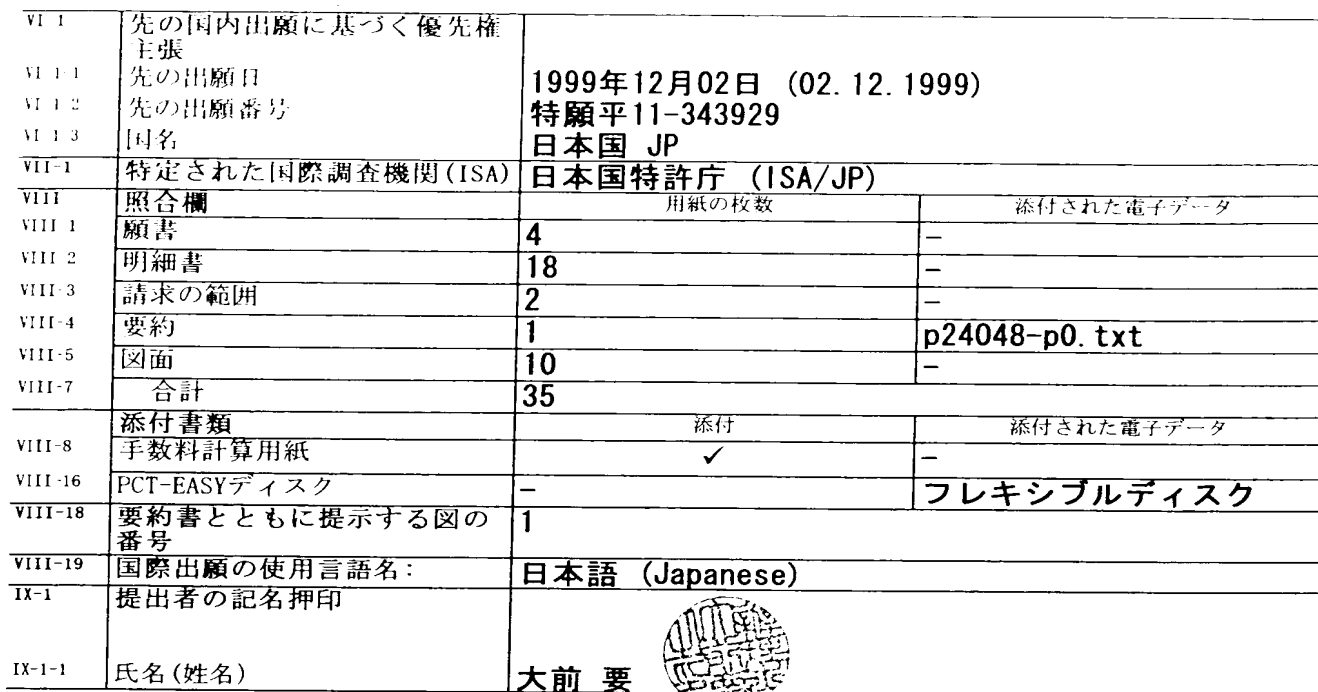 VI-1 先の国内出願に基づく優先権
主張
VI-1-1 先の出願日 1999年12月02日 (02.12.1999)
VI-1-2 先の出願番号 特願平11-343929
VI-1-3 国名 日本国 JP
VII-1 特定された国際調査機関(ISA) 日本国特許庁 (ISA/JP)
VIII 照合欄 用紙の枚数 添付された電子データ
VIII-1 願書 4 -
VIII-2 明細書 18 -
VIII-3 請求の範囲 2 -
VIII-4 要約 1 p24048-p0.txt
VIII-5 図面 10 -
VIII-7 合計 35
添付書類 添付 添付された電子データ
VIII-8 手数料計算用紙 ✓ -
VIII-16 PCT-EASYディスク - フレキシブルディスク
VIII-18 要約書とともに提示する図の 1
番号
VIII-19 国際出願の使用言語名: 日本語 (Japanese)
IX-1 提出者の記名押印
IX-1-1 氏名(姓名) 大前 要